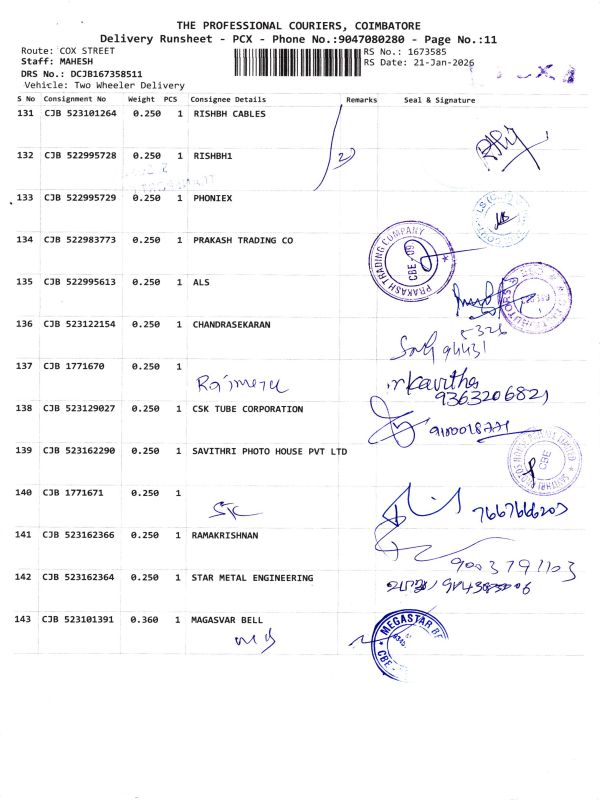 THE PROFESSIONAL COURIERS, COIMBATORE
Delivery Runsheet - PCX - Phone No.:9047080280 - Page No.:11
Route: COX STREET
RS No.: 1673585
Staff: MAHESH
RS Date: 21-Jan-2026
DRS No.: DCJB167358511
Vehicle: Two Wheeler Delivery
S No Consignment No Weight PCS Consignee Details Remarks Seal & Signature
131 CJB 523101264 0.250 1 RISHBH CABLES
132 CJB 522995728 0.250 1 RISHBH1 2
133 CJB 522995729 0.250 1 PHONIEX
134 CJB 522983773 0.250 1 PRAKASH TRADING CO
PRAKASH TRADING COMPANY
CBE
135 CJB 522995613 0.250 1 ALS
136 CJB 523122154 0.250 1 CHANDRASEKARAN
137 CJB 1771670 0.250 1
kavitha
9363206821
138 CJB 523129027 0.250 1 CSK TUBE CORPORATION
139 CJB 523162290 0.250 1 SAVITHRI PHOTO HOUSE PVT LTD
SAVITHRI PHOTO HOUSE PRIVATE LIMITED
CBE
140 CJB 1771671 0.250 1
7667666203
141 CJB 523162366 0.250 1 RAMAKRISHNAN
9003791103
142 CJB 523162364 0.250 1 STAR METAL ENGINEERING
143 CJB 523101391 0.360 1 MAGASVAR BELL
MEGASTAR BE
CBE